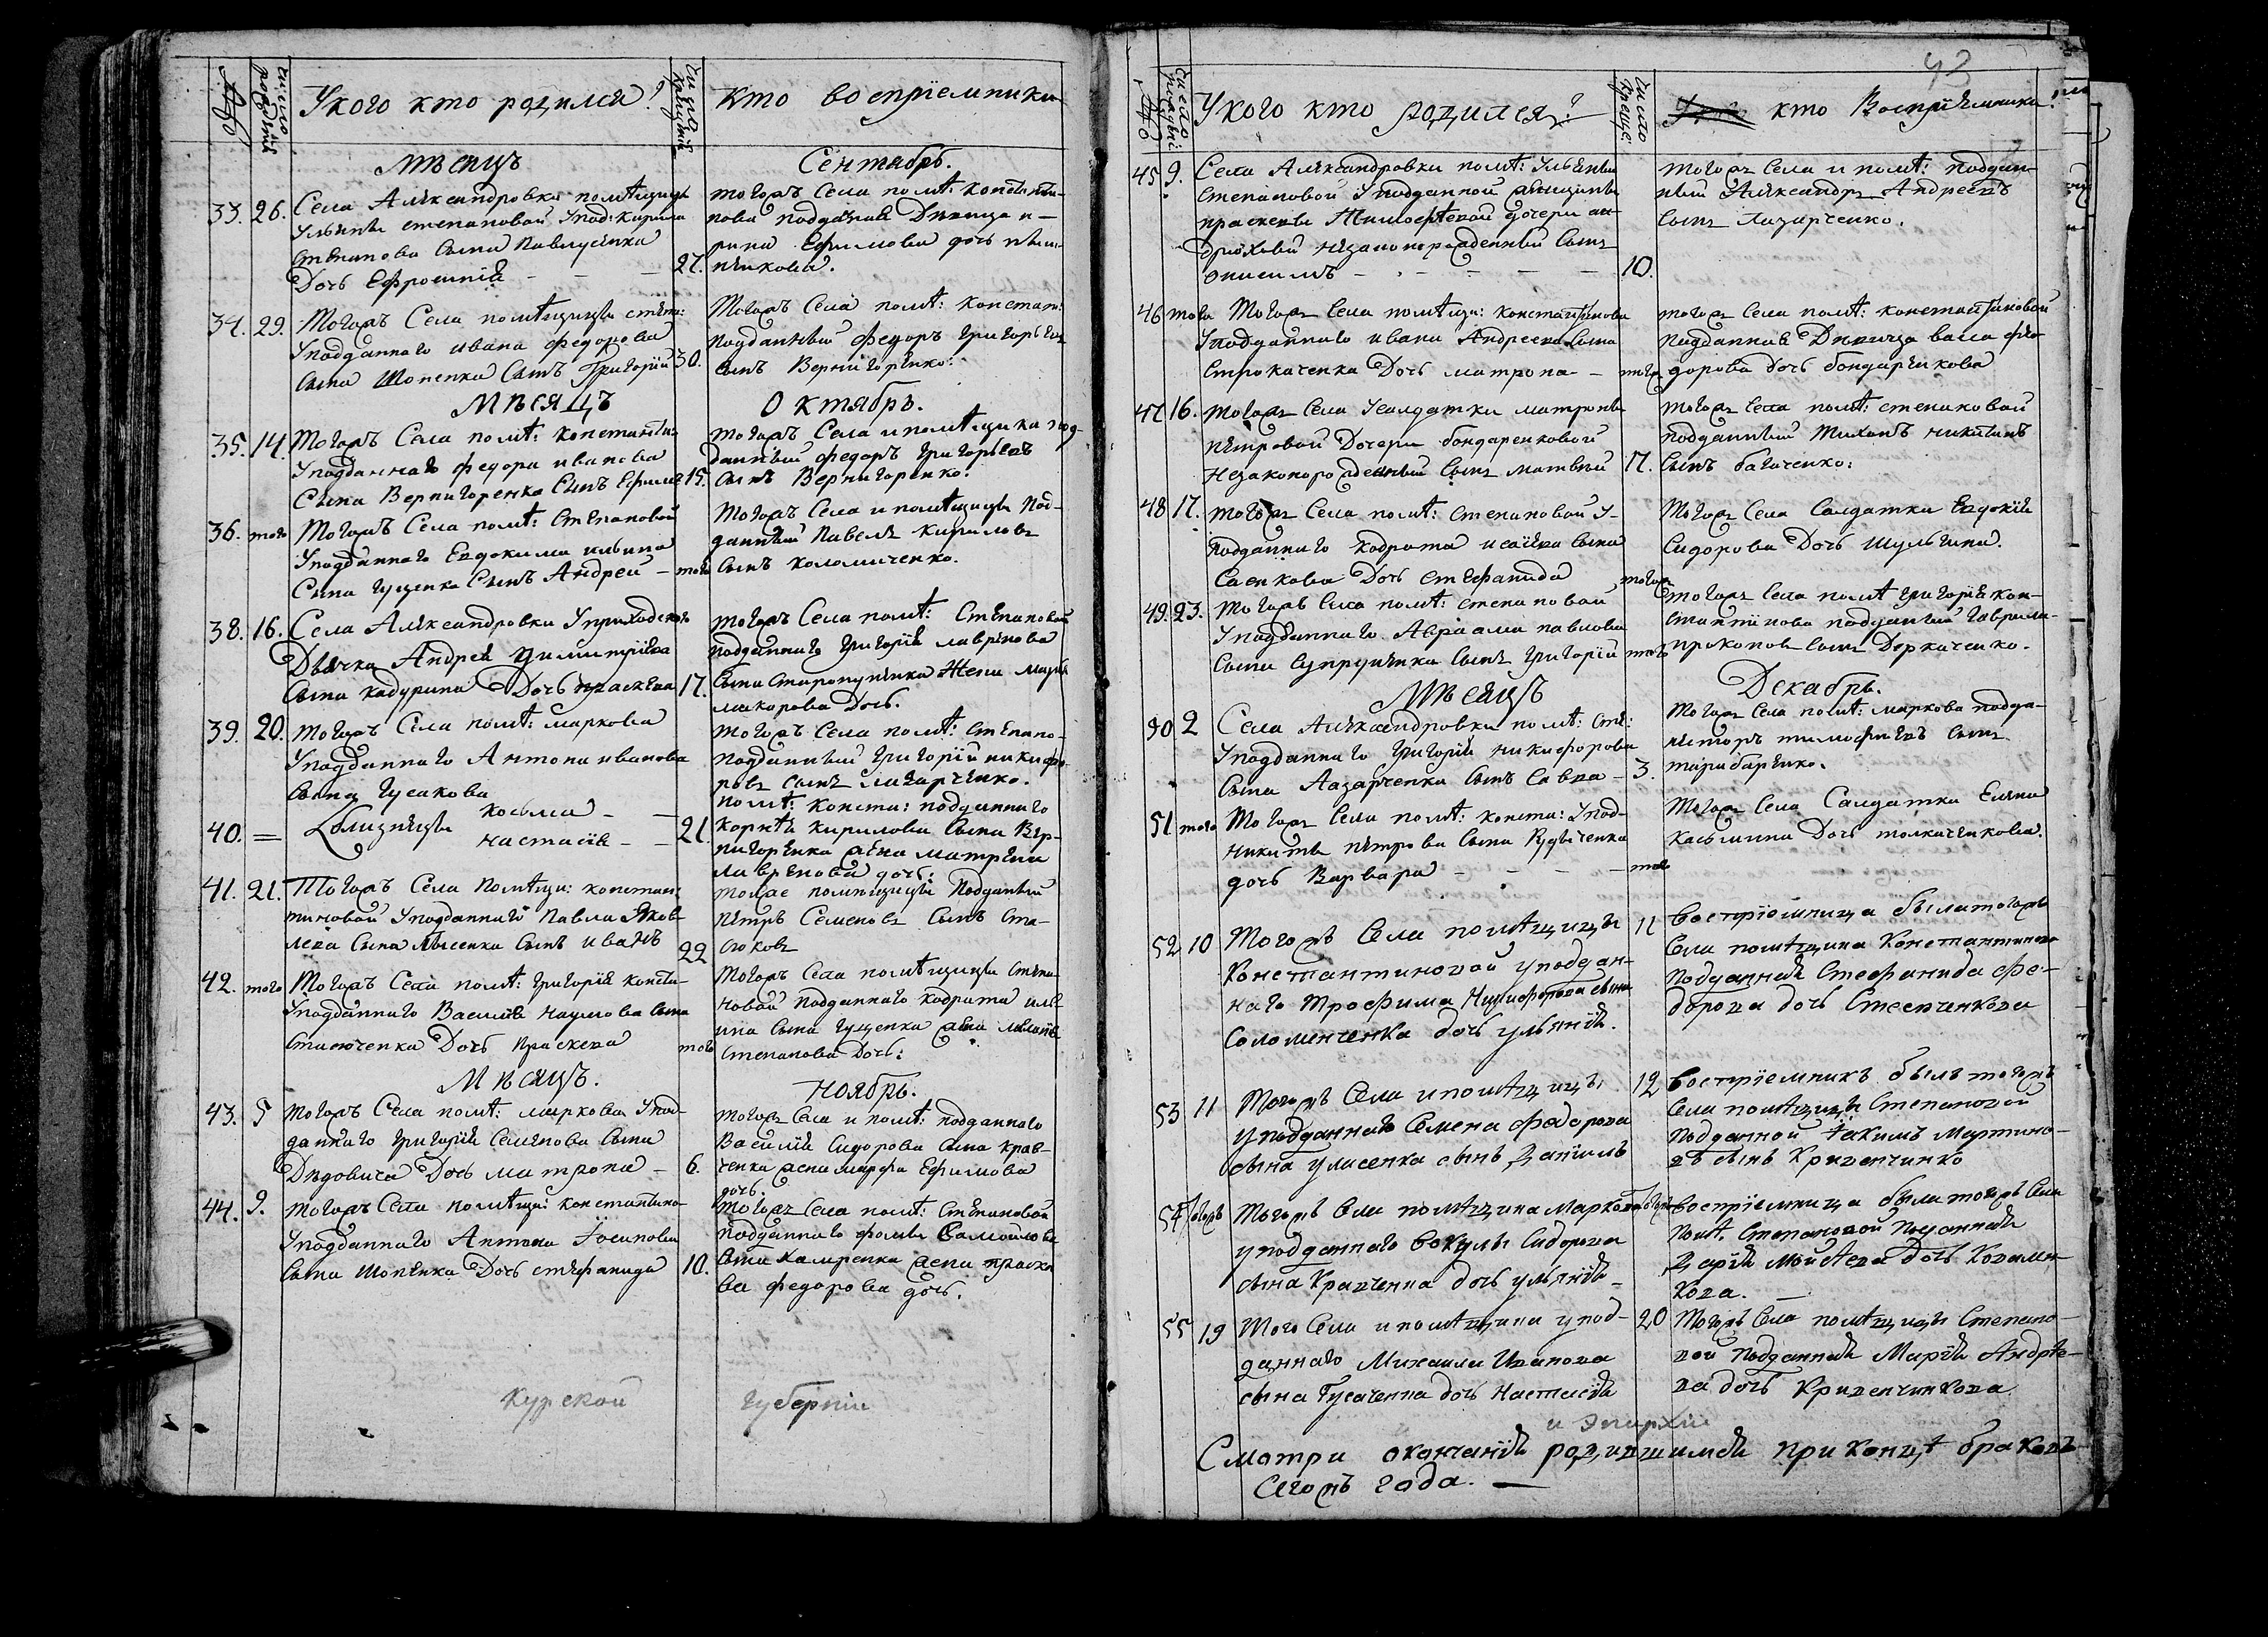 №
число рождений
У кого кто родился?
число крещений
Кто воспрiемники
Мѣсяцъ Сентябрь.
33. 26. Села Александровки помѣщицы
Ульяны степановой у под: Кирила
Степанова сына Павлусенка
Дочь Ефросинiя - - - 27.
тогожъ села помѣ: константи-
нова подданная Дѣвица и-
рина Ефимова дочь
34. 29. Тогожъ Села помѣщицы степа:
у подданнаго ивана федорова
сына Шопенка Сынъ Григорiй 30.
Тогожъ Села помѣ: констан:
подданный федоръ григорьевъ
сынъ Вернигоренко:
Мѣсяцъ Октябрь.
35. 14. Тогожъ Села помѣ: константи:
у подданнаго федора иванова
Сына Вернигоренка Сынъ Ефимъ 15.
тогожъ Села и помѣщика под-
данный федоръ григорьевъ
сынъ Вернигоренко.
36. того Тогожъ Села помѣ: Степановой
у подданнаго Евдокима ильина
Сына гущенка Сынъ Андрей - того
Тогожъ Села и помѣщицы под-
данный Павелъ Кириловъ
сынъ коломиченко.
38. 16. Села Александровки у приходскаго
Дьячка Андрея Димитрiева
сына кадурина Дочь праскева 17.
тогожъ Села помѣ: Степановой
подданнаго григорiя лавренова
сына Жена марья
макарова Дочь.
39. 20. тогожъ Села помѣ: маркова
у подданнаго Антона иванова
сына гусакова
тогожъ Села помѣ: степано-
подданный григорiй никифо-
ровъ сынъ лазарченко.
40. = близнецы косьма - -
настасiя - - 21.
помѣ: конста: подданнаго
корнѣя кирилова сына Вер-
нигоренка жена матрена
лавренова дочь:
41. 21. Тогожъ Села помѣщи: констан:
тиновой у подданнаго Павла Яков
лева Сына лысенка сынъ иванъ 22
тояже помѣщицы подданный
петръ Семеновъ сынъ
42. того Тогожъ Села помѣ: григорiя конста-
у подданнаго Василiя наумова сына
стаюченка Дочь праскева того
тогожъ Села помѣщицы степа-
новой подданнаго кодрата иль
ина сына гущенка жена
степанова Дочь:
Мѣсяцъ. Ноябрь.
43. 5 тогожъ Села помѣ: маркова у под-
даннаго григорiя семенова сына
Дѣдовича Дочь матрона - 6.
тогожъ Села и помѣ: подданнаго
Василiя Сидорова сына крав-
ченка жена марфа Ефимова
дочь
44. 9. тогожъ Села помѣщи: константино-
у подданнаго Антона Iосипова
сына Шопенка Дочь стефанида 10.
тогожъ Села помѣ: Степановой
подданнаго фомы Самойлова
сына жена праске
ва федорова дочь.
Курской губернiи
42
№
число рожденi:
У кого кто родился?
число креще:
кто Воспрiемники?
45 9. Села Александровки помѣ: Ульяны
степановой у подданной
праскевы Тимофѣевой дочери ан-
дрюховой незаконорожденный сынъ
онисимъ - - - - - 10.
тогожъ Села и помѣ: поддан-
ный Александръ Андреевъ
сынъ Лазарченко.
46 того Тогожъ Села помѣщи: константинова
у подданнаго ивана Андреева сына
Строкаченка Дочь матрона - того
тогожъ Села помѣ: константиновой
подданная Дѣвица васса фео
дорова дочь бондаренкова
47 16. тогожъ Села у солдатки матроны
петровой Дочери бондаренковой
незаконорожденный сынъ матвей 17.
тогожъ Села помѣ: степановой
подданный Тихонъ никитинъ
сынъ багаченко:
48 17. тогожъ Села помѣ: степановой у-
подданнаго кодрата исаiева сына
саенкова Дочь стефанида тогожъ
Тогожъ Села Солдатки Евдокiя
Сидорова Дочь шульгина.
49. 23. тогожъ Села помѣ: степановой
у подданнаго Авраама павлова
сына супруненка сынъ григорiй того
тогожъ Села помѣ григорiя кон-
стантинова подданый гаврила
прокоповъ сынъ Деркаченко.
Мѣсяцъ Декабрь.
50 2 Села Александровки помѣ: сте:
у подданнаго григорiя никифорова
сына Лазарченка сынъ Савва - 3.
тогожъ Села помѣ: маркова подда-
несторъ тимофеевъ сынъ
тарабаренко.
51 того Тогожъ Села помѣ: конста: у под-
никиты петрова сына Рудыченка
дочь Варвара - - - - того
Тогожъ Села Салдатка Елена
касьмина Дочь толкаченкова.
52 10 Тогожъ Села помѣщицы
Константиновой у поддан-
наго Трофима Никифорова сына
Соломенченка дочь ульянiя.
11 воспрiемница была тогожъ
Села помѣщика Константинова
подданная Стефанида Фе-
дорова дочь Стесенкова
53 11 Тогожъ Села и помѣщицы
у подданнаго Семена Федорова
сына улисенка сынъ Данiилъ
12 воспрiемникъ былъ тогожъ
Села помѣщицы Степановой
подданной Iакимъ Мартино-
въ сынъ Кривенчинко
54 тогожъ Тогожъ Села помѣщика Маркова
у подданнаго Вакулы Сидорова
сына Кравченка дочь ульянiя -
воспрiемница была тогожъ Села
помѣ. Степановой подданная
Дарiя Мойсѣева дочь Коваленкова. -
55 19 Того Села и помѣщика у под-
даннаго Михаила Иванова
сына Гусаченка дочь Настасiя
20 Тогожъ Села помѣщицы Степано-
вой подданная Марiя Андрѣе-
ва дочь Кривенчинкова
и Эпархiи
Смотри окончанiя родившимся при концѣ браковъ
сегожъ года. -